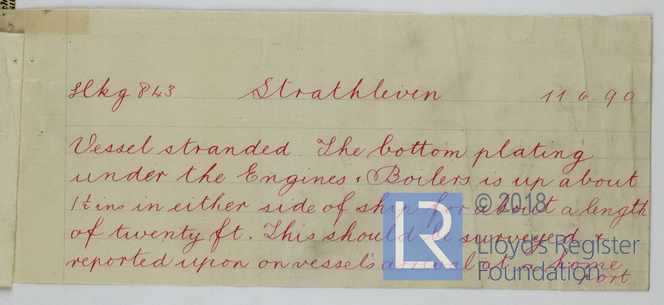 Hkg 843 Strathleven 11.6.90
Vessel stranded. The bottom plating
under the Engines & Boilers is up about
1½ ins in either side of ship for about a length
of twenty ft. This should be surveyed &
reported upon on vessel's arrival at a home
port
LR
© 2018
Lloyd's Register
Foundation